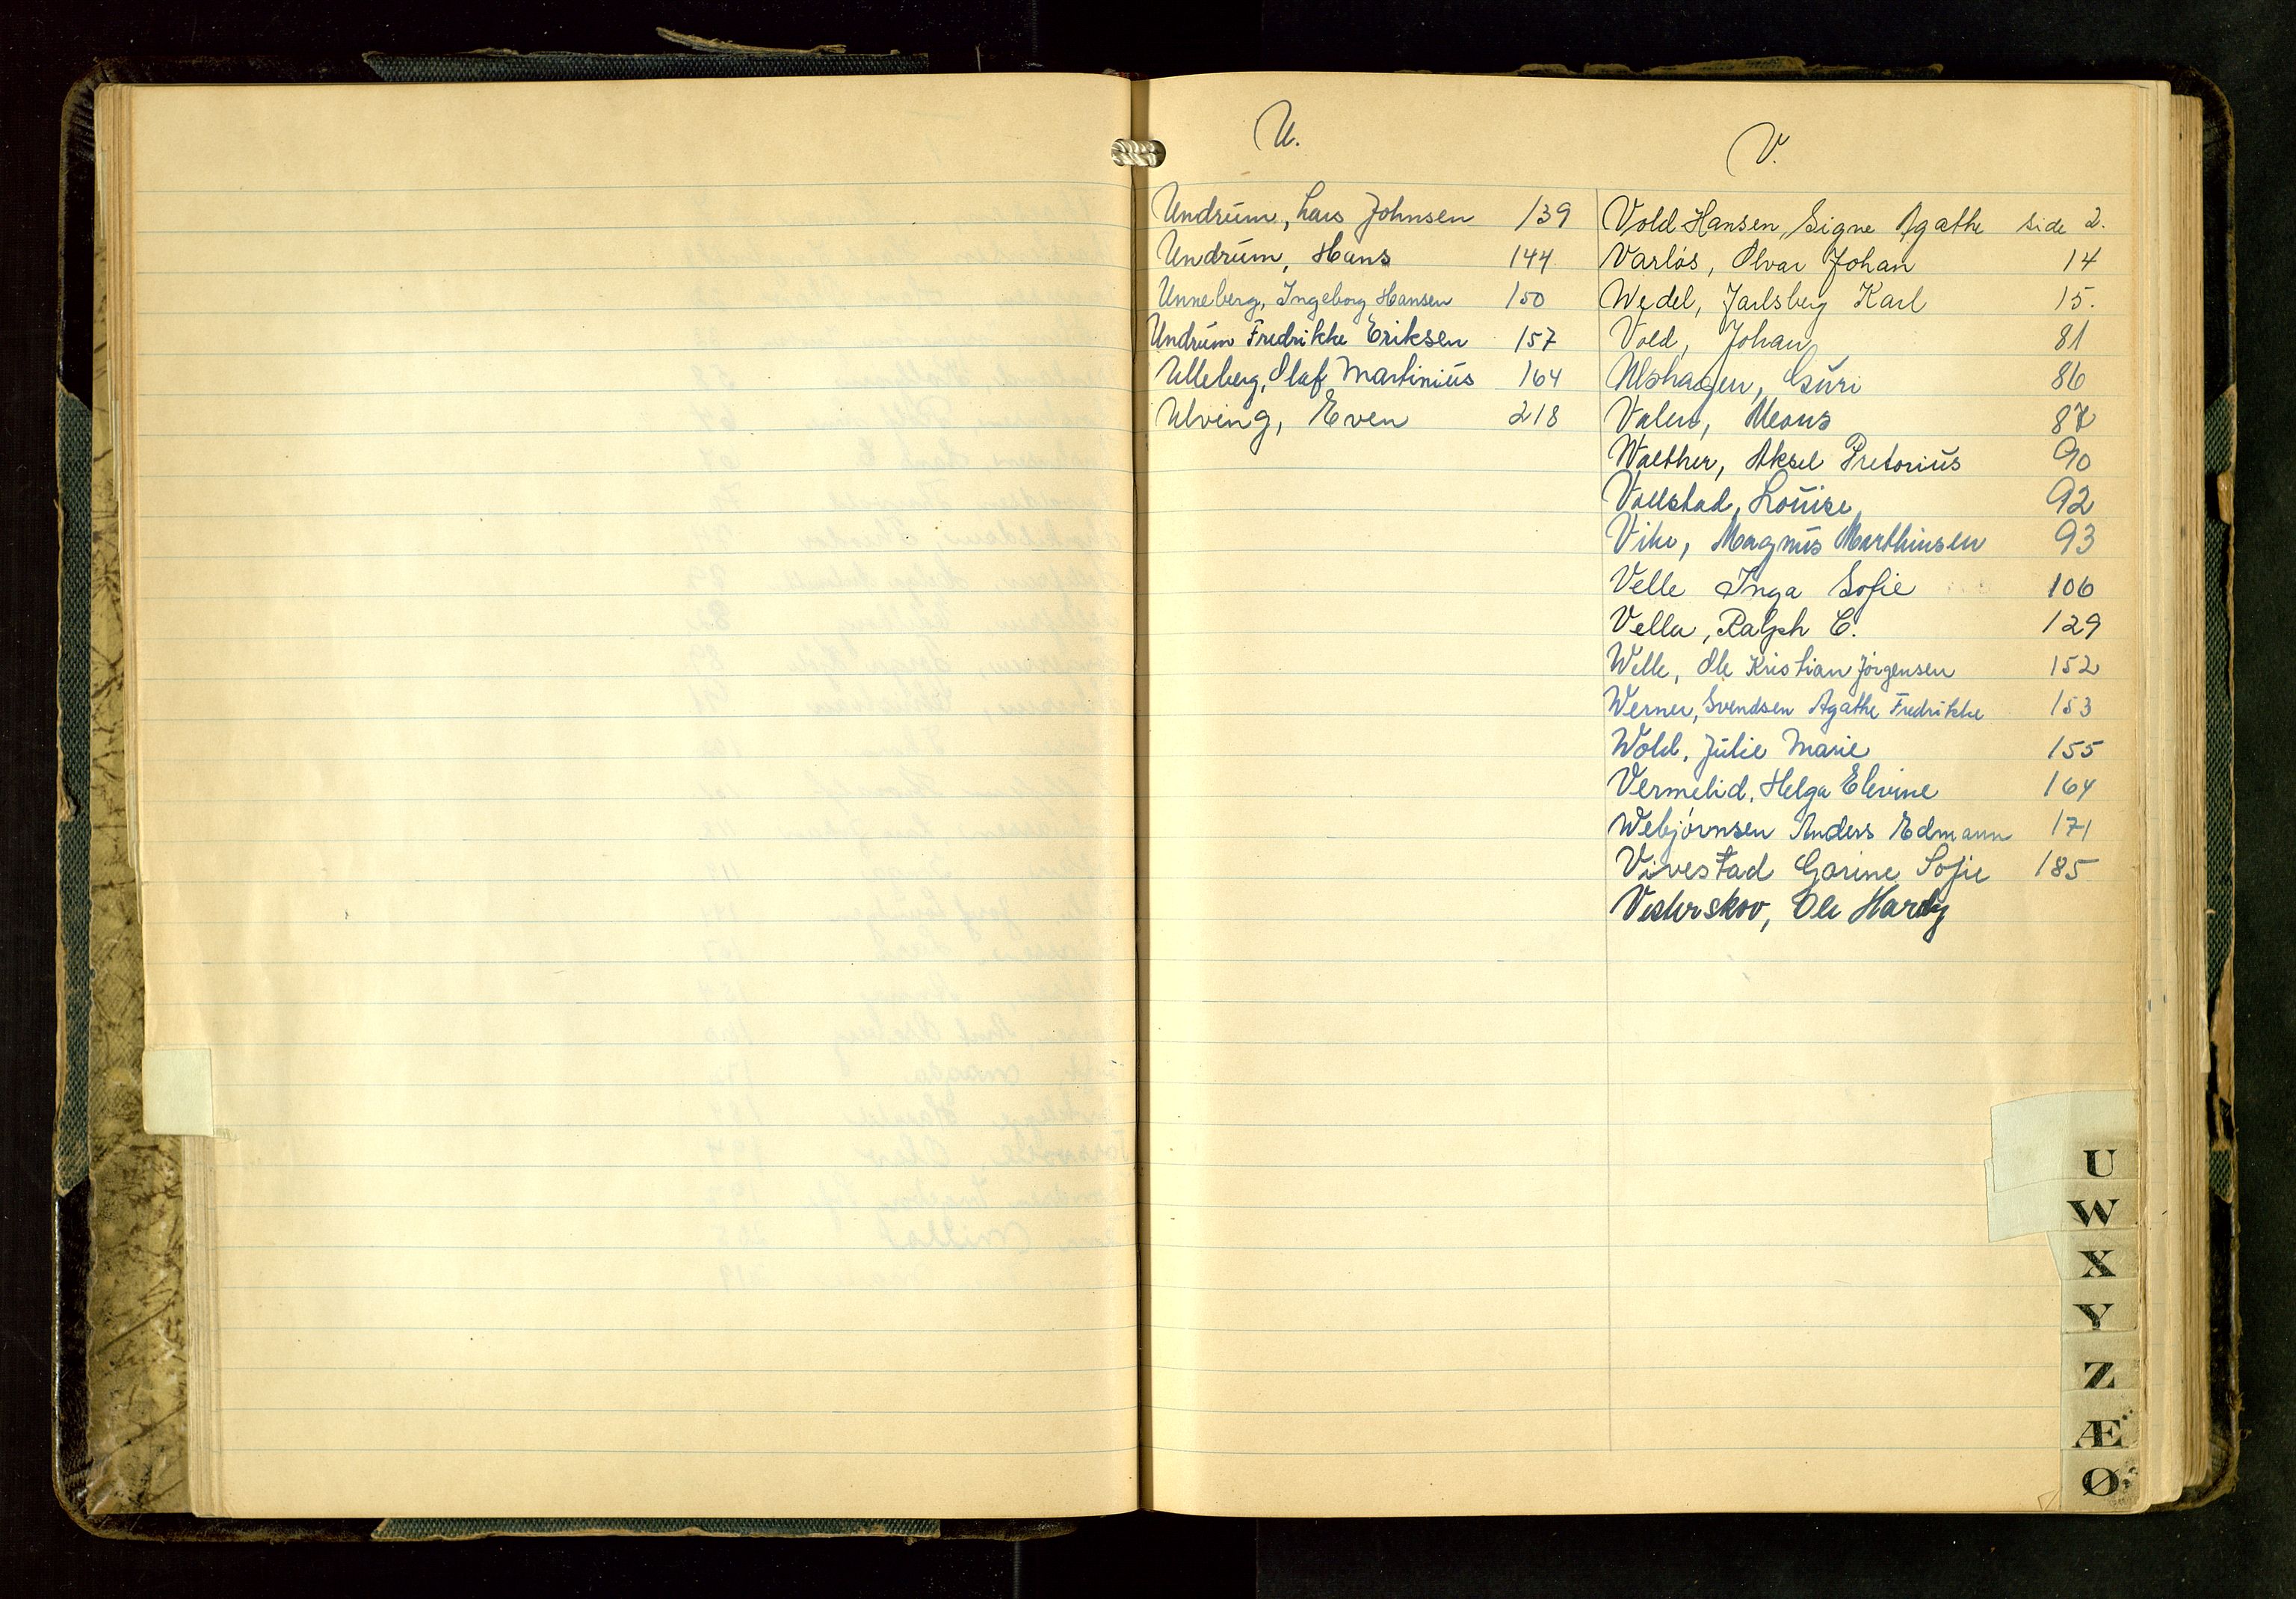 U.
Undrum, Lars Johnsen 139
Undrum, Hans 144
Unneberg, Ingeborg Hansen 150
Undrum Fredrikke Eriksen 157
Ulleberg, Olaf Martinius 164
Ulving, Even 218
V.
Vold Hansen, Signe Agathe side 2.
Varlös, Olvar Johan 14
Wedel, Jarlsberg Karl 15.
Vold, Johan 81
Ulshagen, Guri 86
Valen, Mons 87
Walther, Aksel Pretorius 90
Vallstad, Louise, 92
Vike, Magnus Marthinsen 93
Velle Inga Sofie 106
Vella, Ralph C. 129
Welle, Ole Kristian Jörgensen 152
Werner, Svendsen Agathe Fredrikke 153
Wold, Julie Marie 155
Vermelid, Helga Elevine 164
Webjörnsen Anders Edmann 171
Vivestad Gorine Sofie 185
Vesterskov, Ole Hardy
U
W
X
Y
Z
Æ
Ø